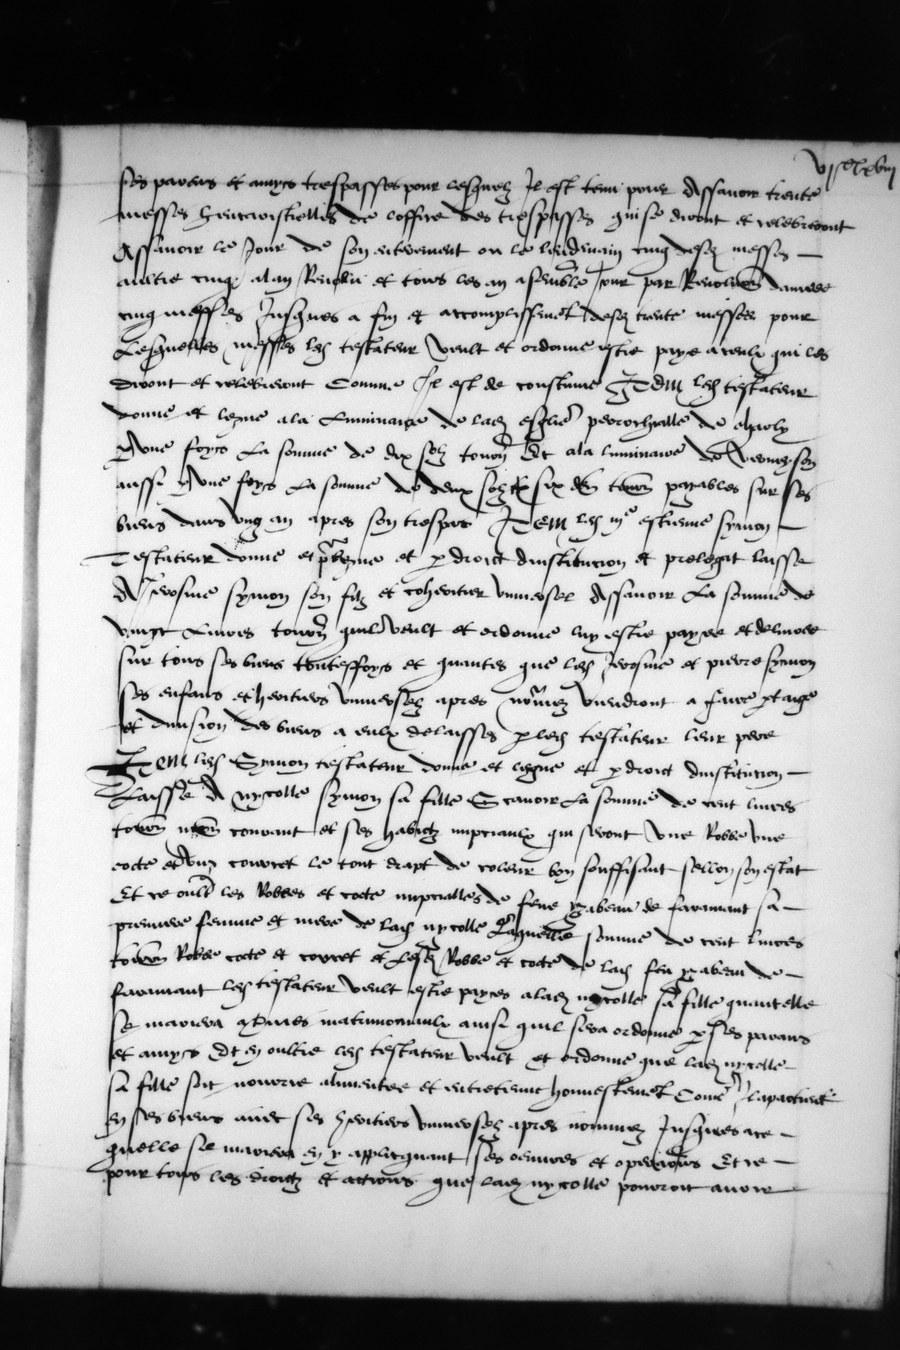 vjc lxviij
ses parens et amys trespasses pour lesquelz Il est tenu prier Assavoir trente
messes de loffice des trespasses qui se diront et celebreront
Assavoir le Jour de son enterrement ou le lendemain cinq desd messes
aultre cinq alan Revolu et tous les an Jour par Revolution dannee
cinq messes Jusques a fin et accomplissement desd trente messes pour
Lesquelles messes led testateur veult et ordonne estre paye a ceulx qui les
diront et celebreront Comme Il est de coustume Item led testateur
donne et legue a la Luminaire de lad esglise perrochialle de
Une foys La somme de dix solz tourn Et a la luminaire de
aussi Une foys La somme de deux solz six den tourn payables sur ses
biens dans ung an apres son trespas Item led me estienne symon
Testateur donne et legue et p droict dinstitucion et prelegat laisse
A symon son filz et coheritier universel Assavoir La somme de
vingt Livres tourn quil veult et ordonne luy estre payee et delivree
sur tous ses biens touteffoys et quantes que led et pierre symon
ses enfans et heritiers universelz apres nommez viendront a faire ptaige
et division des biens a eulx delaisses p led testateur leur pere
Item led Symon testateur donne et legue et p droict dinstitucion
Laisse A nycolle symon sa fille Scavoir La somme de cent livres
tourn couvrant et ses habictz nupciaulx qui seront une Robbe une
cocte et ung couvret le tout drapt de coleur bon souffisant sellon son estat
Et ce oultre les Robbes et cocte nupcialles de feue ysabeau de faramant sa
premiere femme et mere de lad nycolle Laquelle somme de cent livres
tourn Robbe cocte et couvret et Lesd Robbe et cocte de lad feu ysabeau de
faramant led testateur veult estre payees a lad nycolle sa fille quant elle
se mariera matrimoniaulx ainsi quil sera ordonne p ses parans
et amys Et en oultre led testateur veult et ordonne que lad nycolle
sa fille soit nourrie alimentee et entretenue honnestement Comme
en ses biens avec ses heritiers universelz apres nommez Jusques a ce
quelle se mariera en y applicquant ses oeuvres et operacions Et ce
pour tous les droictz et actions que lad nycolle pourroit avoir